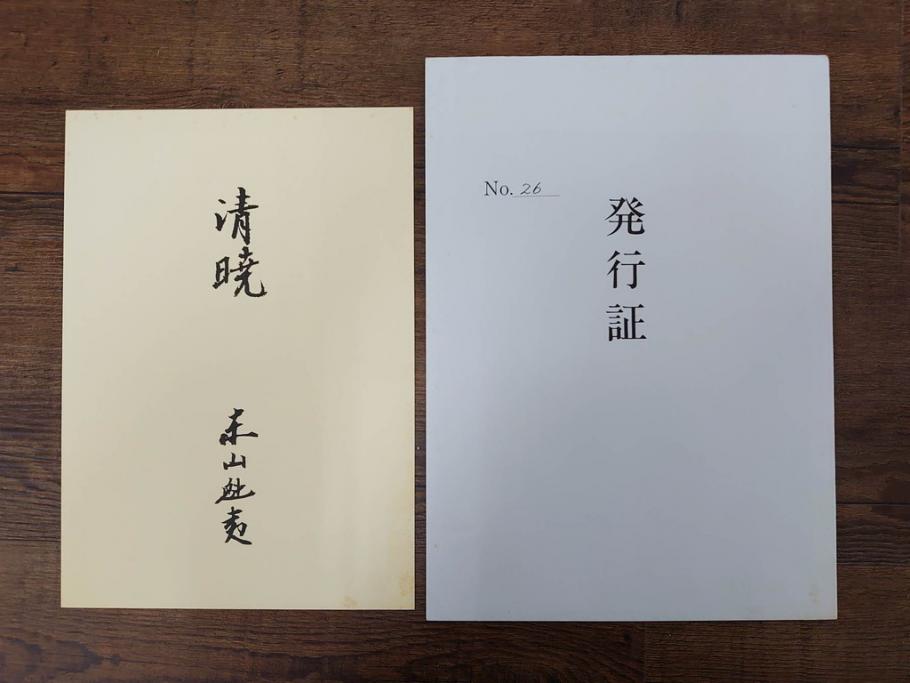 清暁
東山魁夷
No. 26
発行証